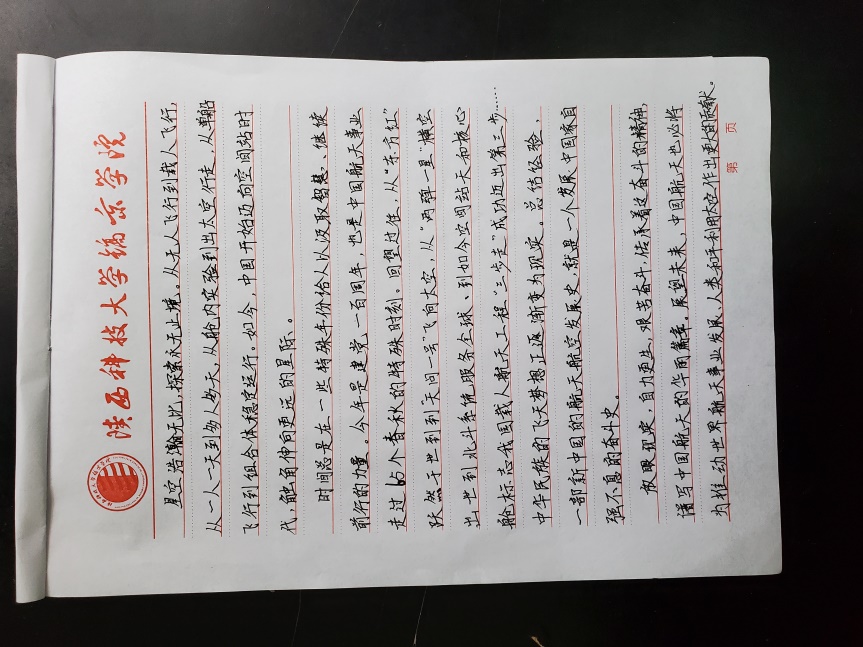 陕西科技大学镐京学院
星空浩瀚无比,探索永无止境。从无人飞行到载人飞行,
从一人一天到多人多天,从舱内实验到出太空行走,从单船
飞行到组合体稳定运行。如今,中国开始迈向空间站时
代,触角伸向更远的星际。
时间总是在一些特殊年份给人以汲取智慧、继续
前行的力量。今年是建党一百周年,也是中国航天事业
走过65个春秋的特殊时刻。回望过往,从“东方红”
跃然于世到到“天问一号”飞向太空,从“两弹一星”横空
出世到北斗系统服务全球、到如今空间站天和核心
舱标志我国载人航天工程“三步走”成功迈出第三步……
中华民族的飞天梦想正逐渐变为现实。总结经验,
一部新中国的航天航空发展史,就是一个发展中国家自
强不息的奋斗史。
放眼现实,自力更生,艰苦奋斗,传承着这奋斗的精神,
谱写中国航天的华丽篇章。展望未来,中国航天也必将
为推动世界航天事业发展,人类和平利用太空作出更大的贡献。
第 页